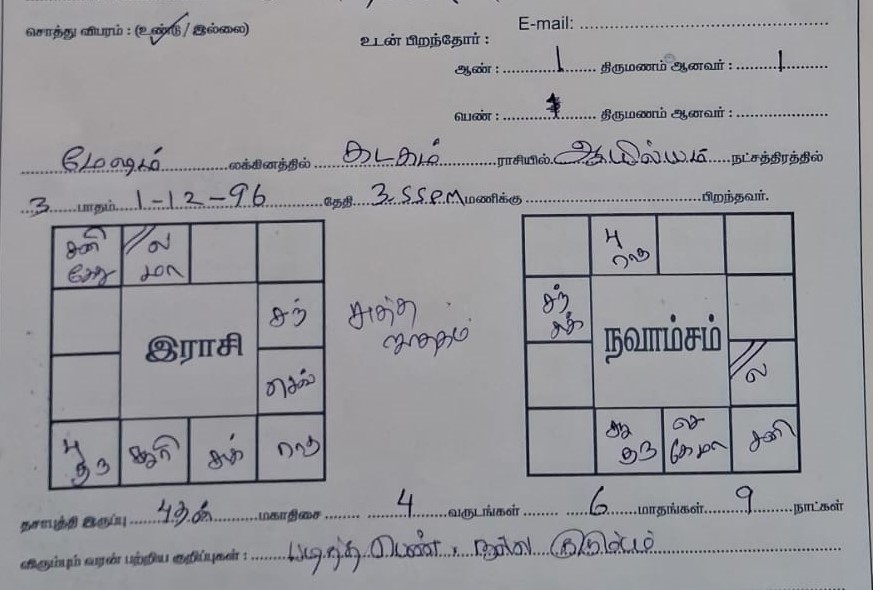 சொத்து விபரம் : (உண்டு / இல்லை)
E-mail:
உடன் பிறந்தோர் :
ஆண் : 1 திருமணம் ஆனவர் : 1
பெண் : திருமணம் ஆனவர் :
மேஷம் லக்கினத்தில் கடகம் ராசியில் ஆயில்யம் நட்சத்திரத்தில்
3 பாதம் 1-12-96 தேதி 3.55PM மணிக்கு பிறந்தவர்.
சனி கேது
ல மா
சந்
இராசி
செவ்
பு குரு
சூரி
சுக்
ராகு
சுத்த ஜாதகம்
பு ராகு
சந் சுக்
நவாம்சம்
ல
சூ குரு
செ கே மா
சனி
தசாபுத்தி இருப்பு புதன் மகாதிசை 4 வருடங்கள் 6 மாதங்கள் 9 நாட்கள்
விரும்பும் வரன் பற்றிய குறிப்புகள் : படித்த பெண், நல்ல குடும்பம்